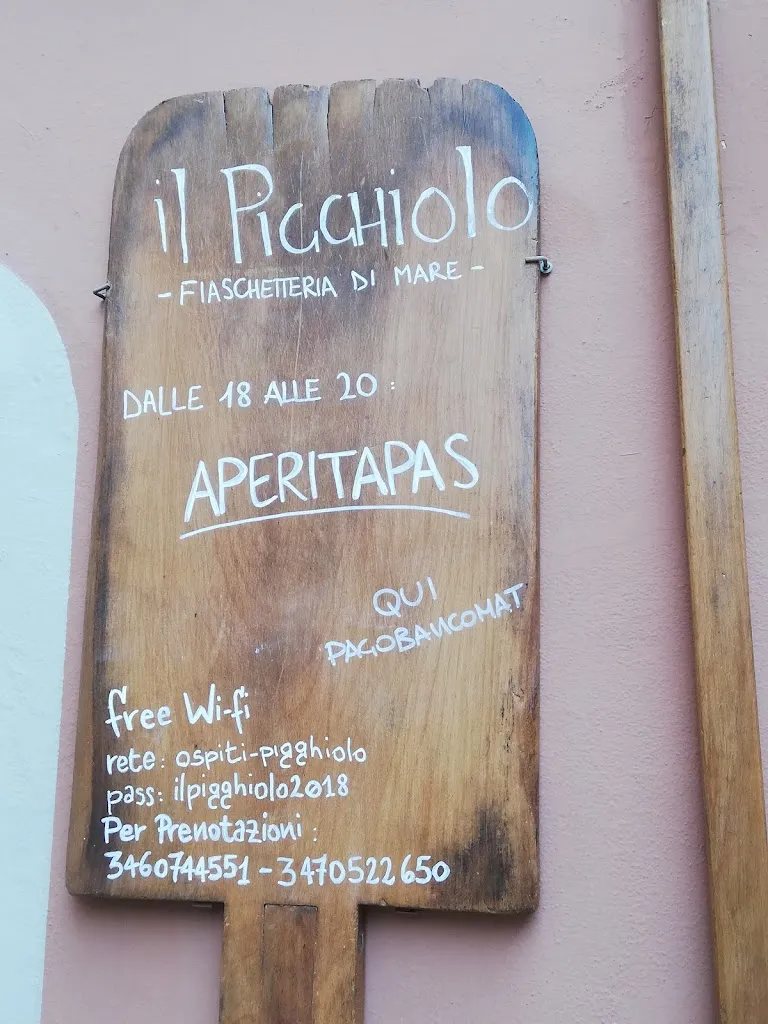 il PIGGHiolo
- FIASCHETTERIA DI MARE -
DALLE 18 ALLE 20 :
APERITAPAS
QUI
PAGOBANCOMAT
free Wi-fi
rete: ospiti-pigghiolo
pass: ilpigghiolo2018
Per Prenotazioni :
3460744551 - 3470522650